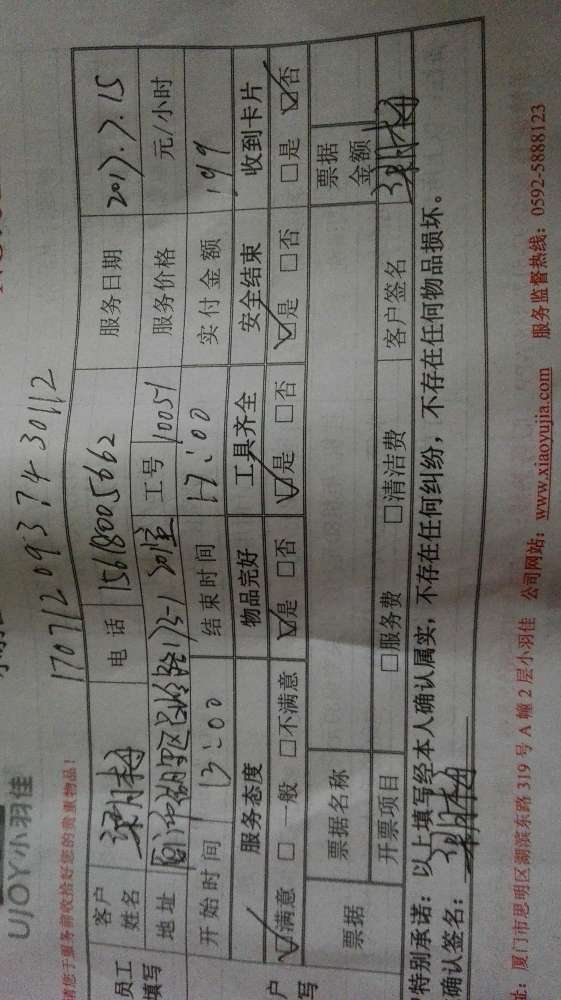 UJOY小羽佳
17071209374 30112
请您于服务前收拾好您的贵重物品!
员工填写
客户姓名 电话 15618005662 服务日期 2017.7.15
地址 工号 10051 服务价格 元/小时
开始时间 13:00 结束时间 17:00 实付金额 199
服务态度 物品完好 工具齐全 安全结束 收到卡片
☑满意 □一般 □不满意 ☑是 □否 ☑是 □否 ☑是 □否 □是 ☑否
票据 票据名称 票据金额
开票项目 □服务费 □清洁费 客户签名
特别承诺:以上填写经本人确认属实,不存在任何纠纷,不存在任何物品损坏。
确认签名:
址:厦门市思明区湖滨东路 319 号 A 幢 2 层小羽佳 公司网站:www.xiaoyujia.com 服务监督热线:0592-5888123